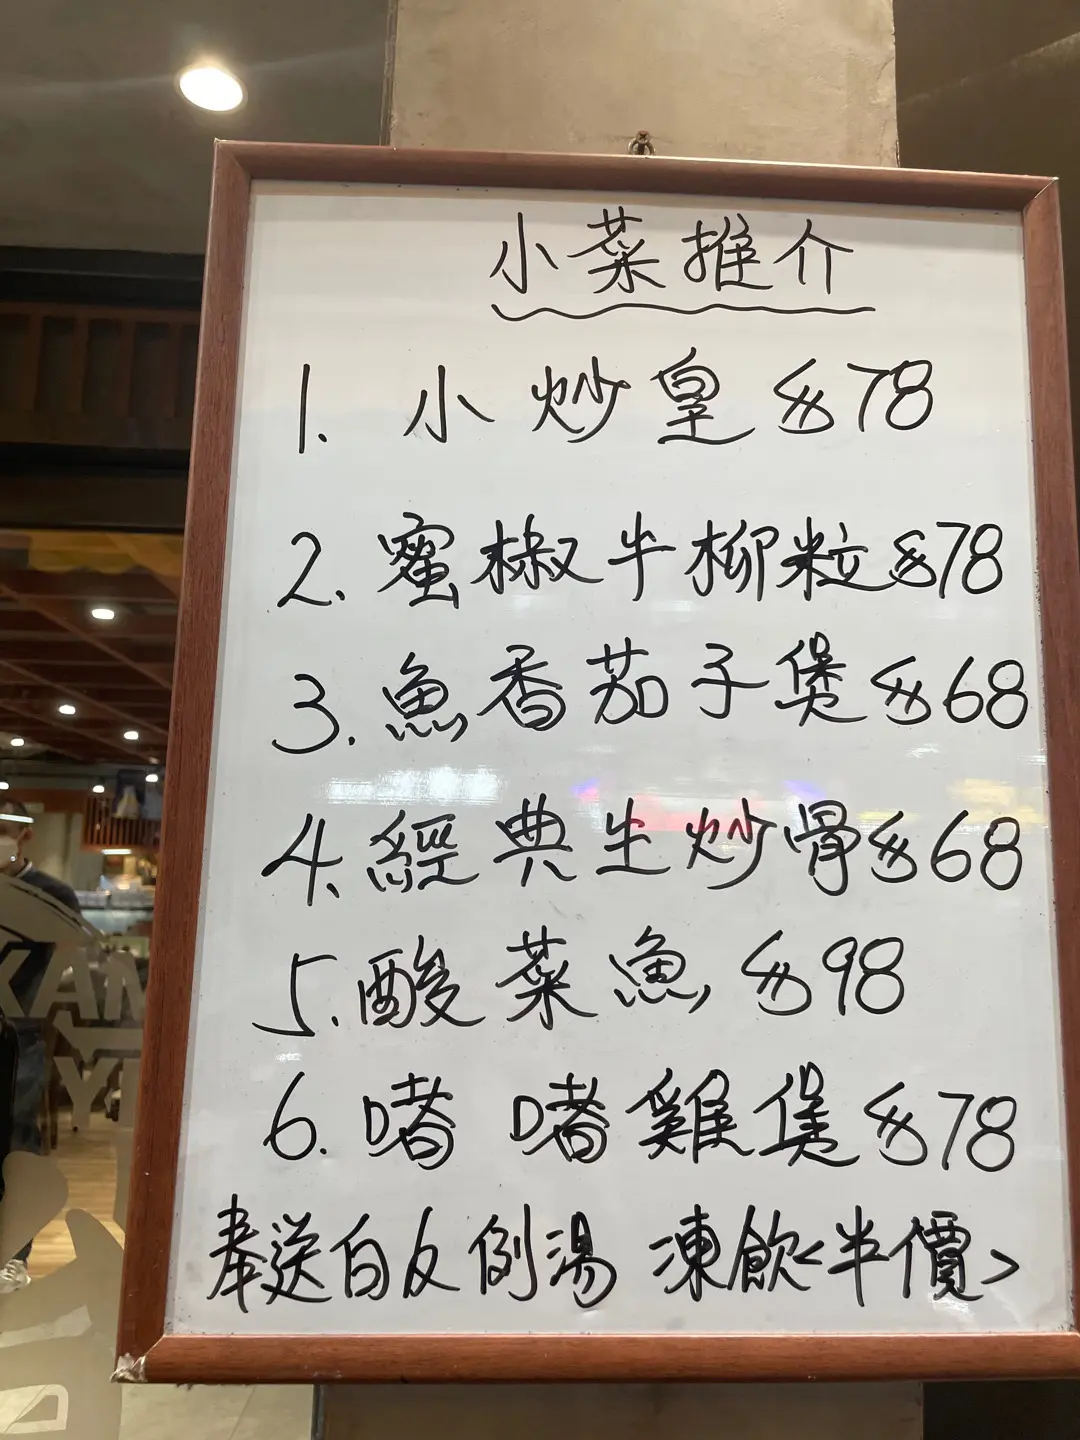 小菜推介
1. 小炒皇 $78
2. 蜜椒牛柳粒 $78
3. 魚香茄子煲 $68
4. 經典生炒骨 $68
5. 酸菜魚 $98
6. 啫啫雞煲 $78
奉送白反例湯 凍飲<半價>
KAM